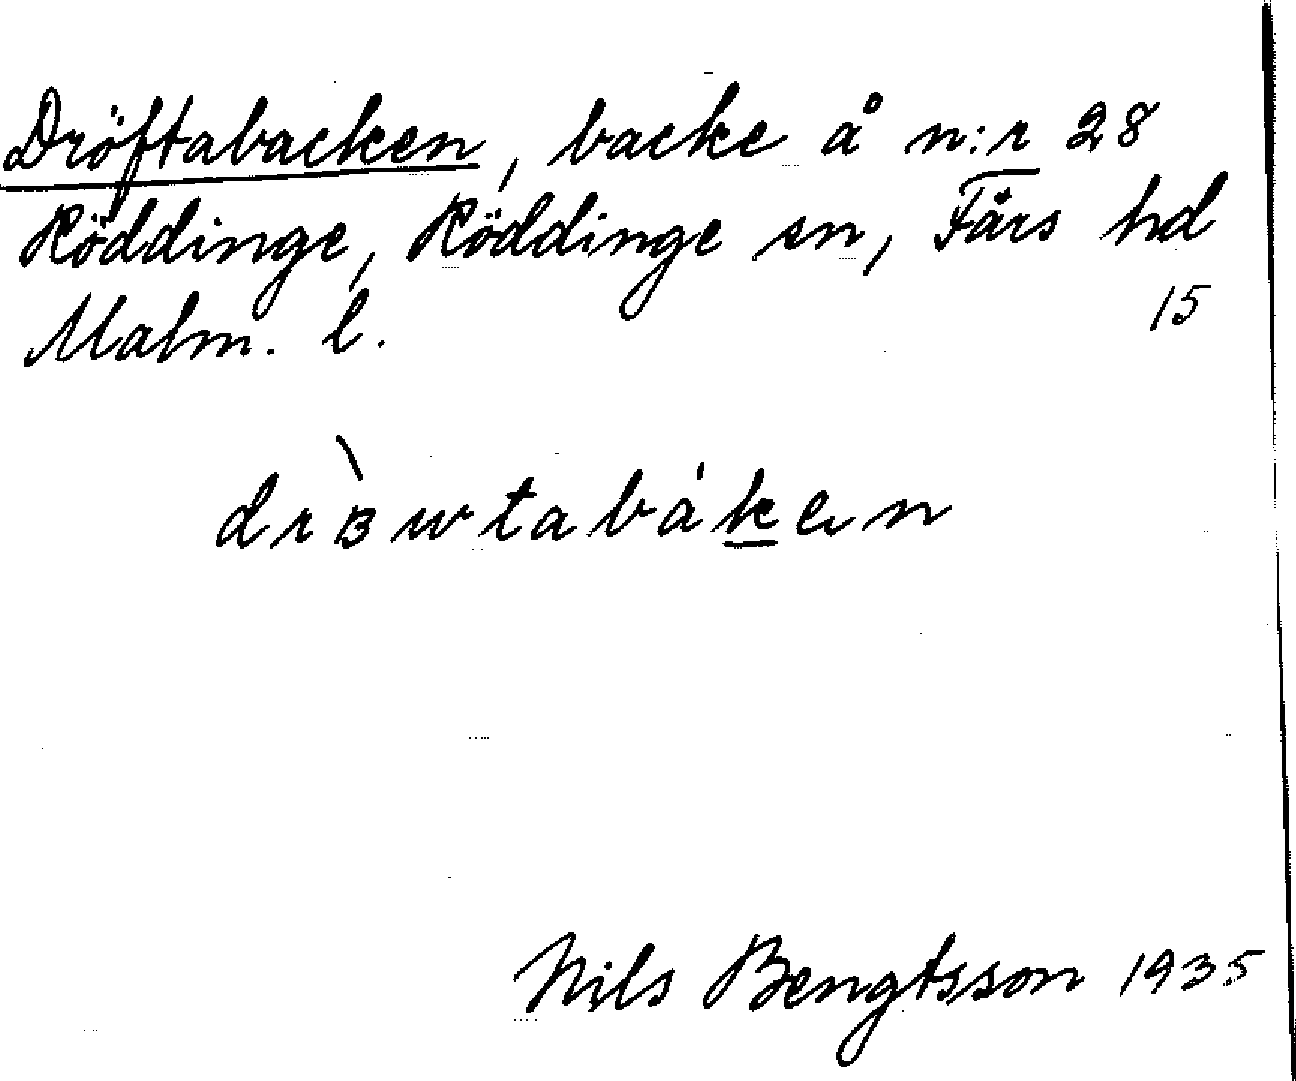 Dröftabacken, backe å n:r 28
Röddinge, Röddinge sn, Färs hd
Malm. l. 15
drɞ̀wtabákən
Nils Bengtsson 1935